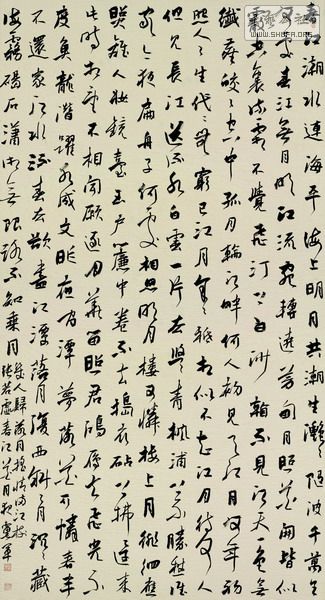 春江潮水連海平海上明月共潮生灧灧隨波千萬里
何處春江無月明江流宛轉遶芳甸月照花林皆似
霰空裏流霜不覺飛汀上白沙看不見江天一色無
纖塵皎皎空中孤月輪江畔何人初見月江月何年初
照人人生代代無窮已江月年年祇相似不知江月待何人
但見長江送流水白雲一片去悠悠青楓浦上不勝愁誰
家今夜扁舟子何處相思明月樓可憐樓上月徘徊應
照離人妝鏡臺玉戶簾中卷不去擣衣砧上拂還來
此時相望不相聞願逐月華流照君鴻雁長飛光不
度魚龍潛躍水成文昨夜閒潭夢落花可憐春半
不還家江水流春去欲盡江潭落月復西斜斜月沉沉藏
海霧碣石瀟湘無限路不知乘月
幾人歸落月搖情滿江樹
張若虛春江花月夜
www.SHUFA.com